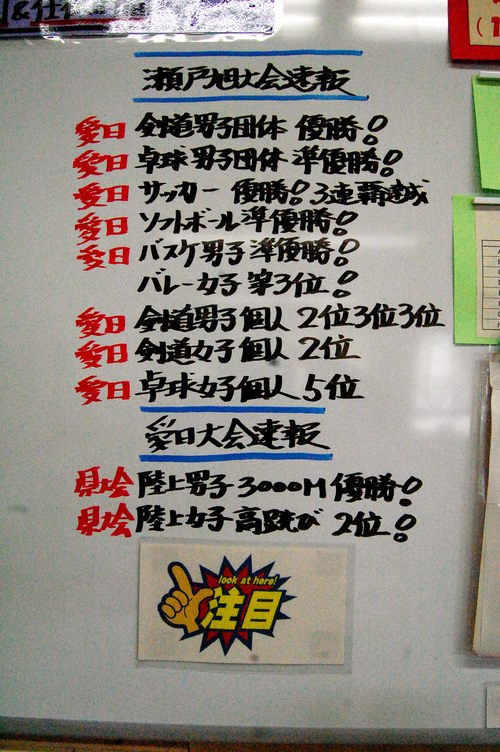 &仕
瀬戸旭大会速報
愛日 剣道男子団体 優勝!
愛日 卓球男子団体 準優勝!
愛日 サッカー 優勝!3連覇達成
愛日 ソフトボール準優勝!
愛日 バスケ男子準優勝!
バレー女子 第3位!
愛日 剣道男子個人 2位3位3位
愛日 剣道女子個人 2位
愛日 卓球女子個人 5位
愛日大会速報
県大会 陸上男子3000M優勝!
県大会 陸上女子高跳び 2位!
look at here!
注目